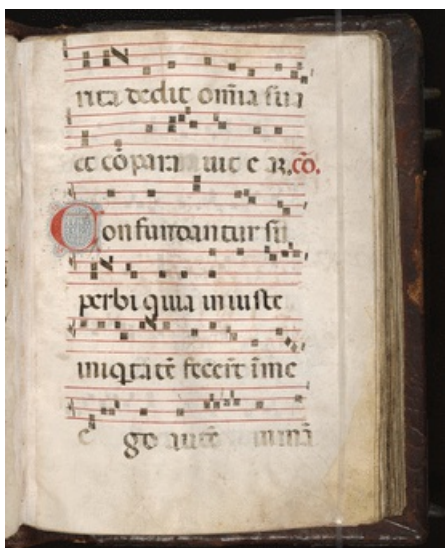 rita dedit om̄ia sua
et cōpara uit e aꝫ. cō.
Confundantur su
perbi quia iniuste
iniqtatē fecer̄t īme
ego autē in mā